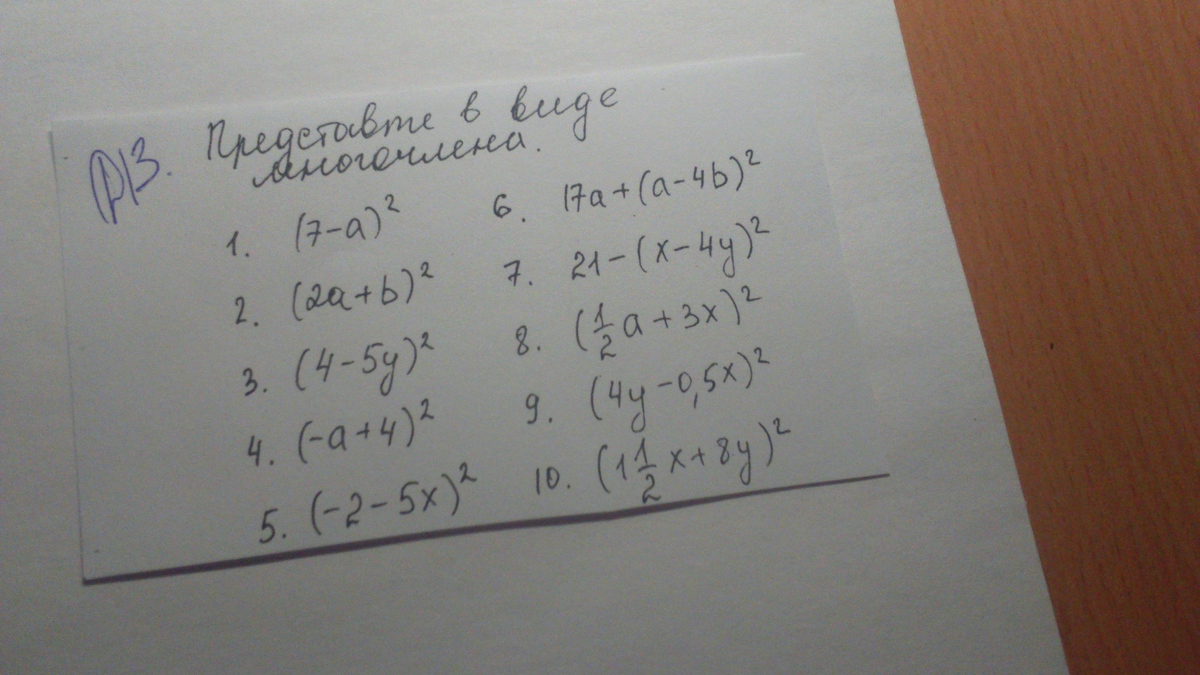 Д/З. Представте в виде
многочлена.
1. (7-a)²
2. (2a+b)²
3. (4-5y)²
4. (-a+4)²
5. (-2-5x)²
6. 17a+(a-4b)²
7. 21-(x-4y)²
8. (1/2 a+3x)²
9. (4y-0,5x)²
10. (1 1/2 x+8y)²